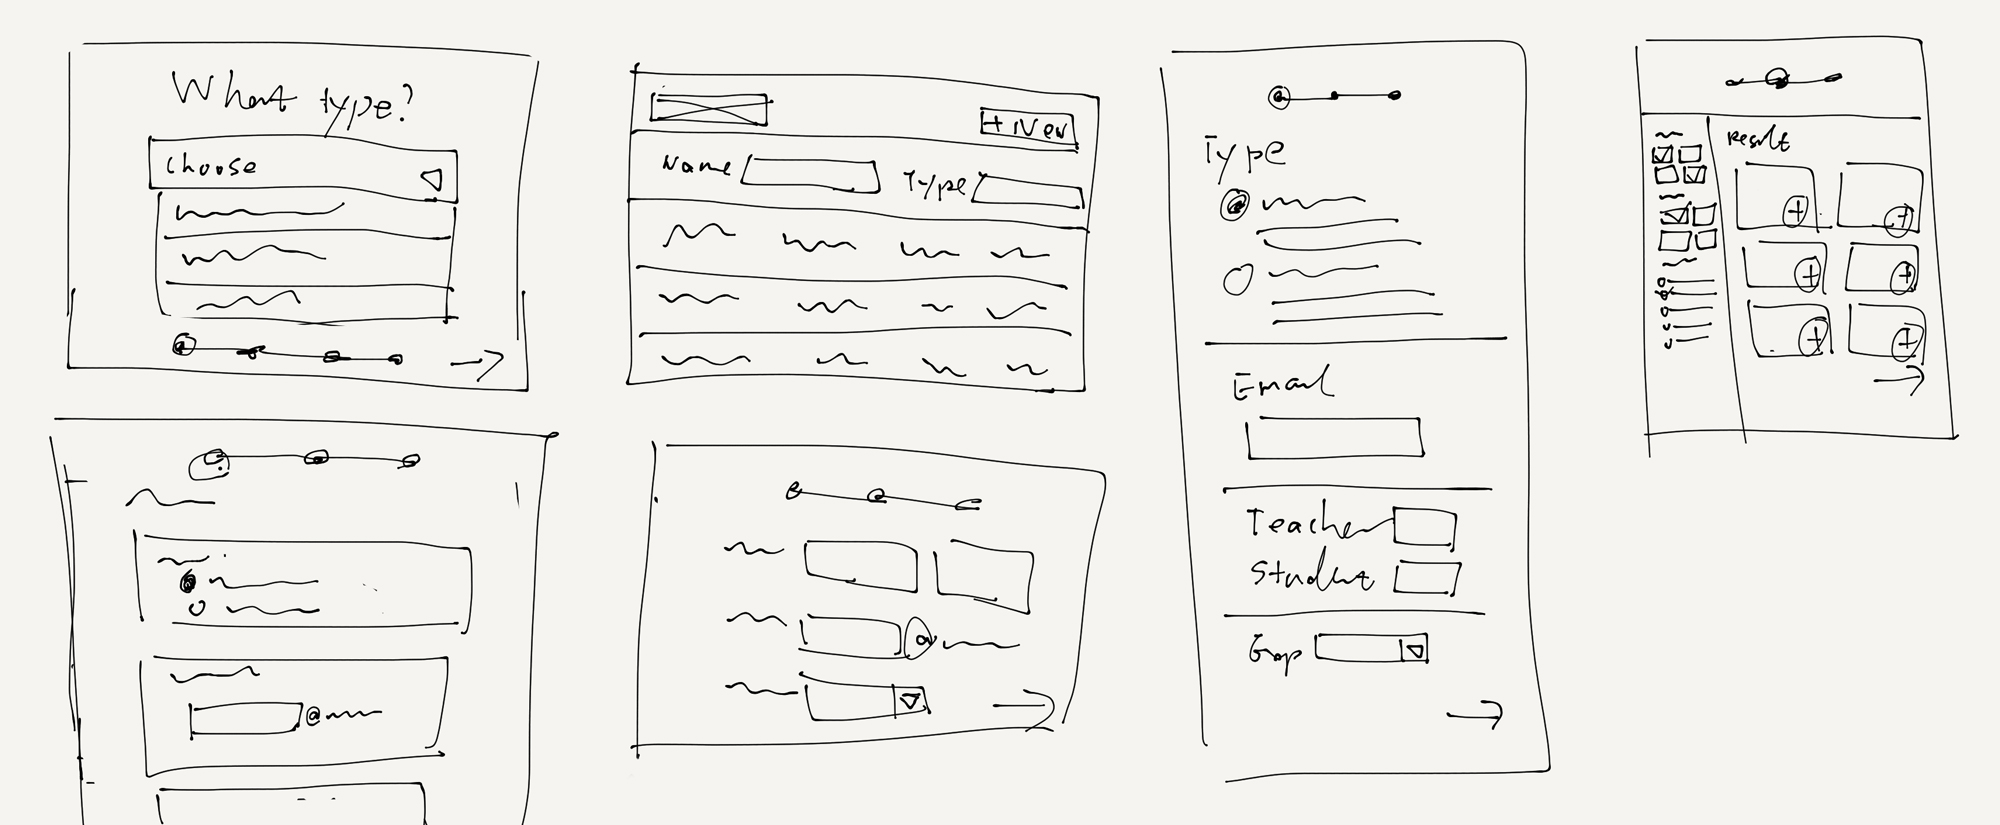 What type?
Choose
+ New
Name
Type
@
@
Type
Email
Teacher
Student
Result